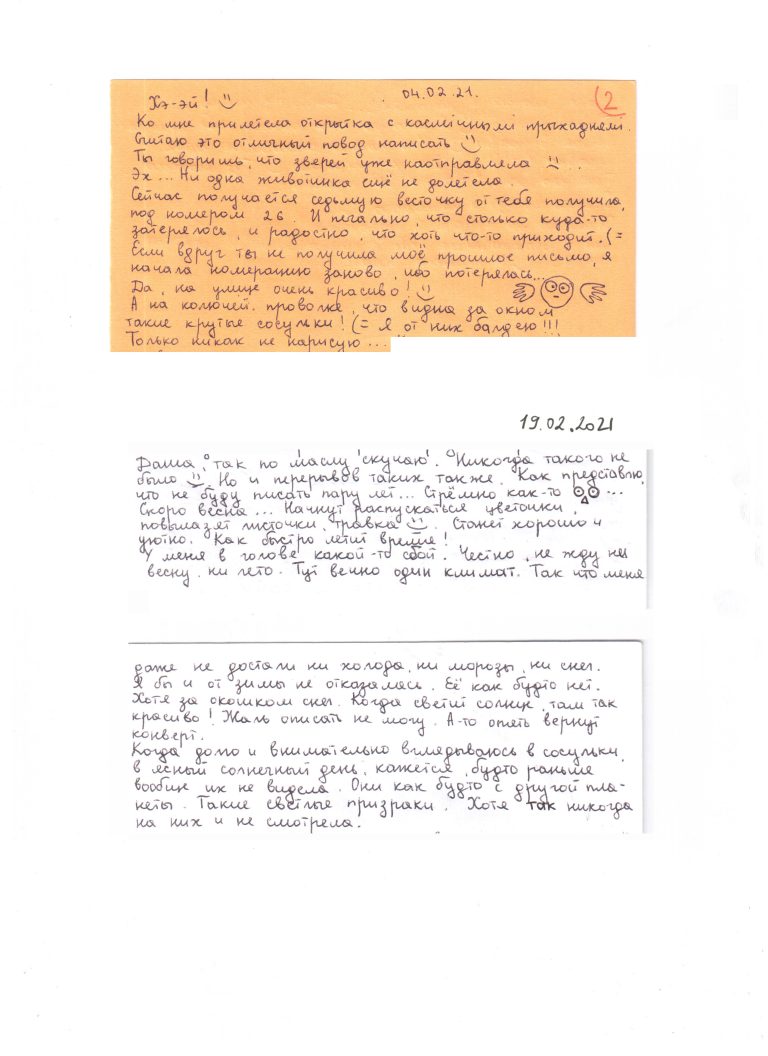 04.02.21.
2
Хэ-эй!
Ко мне прилетела открытка с касмiчнымi прыхаднямi.
Считаю это отличный повод написать
Ты говоришь, что зверей уже наотправляла ...
Эх... Ни одна животинка ещё не долетела.
Сейчас получается седьмую весточку от тебя получила,
под номером 26. И печально, что столько куда-то
затерялось, и радостно, что хоть что-то приходит. (=
Если вдруг ты не получила моё прошлое письмо, я
начала нумерацию заново, ибо потерялась...
Да, на улице очень красиво!
А на колючей проволке, что видна за окном
такие крутые сосульки! (= Я от них балдею!!!
Только никак не нарисую ...
19.02.2021
Даша, так по маслу скучаю. Никогда такого не
было Но и перерывов таких также. Как представлю,
что не буду писать пару лет... Стрёмно как-то ...
Скоро весна... Начнут распускаться цветочки,
повылазят листочки, травка. Станет хорошо и
уютно. Как быстро летит время!
У меня в голове какой-то сбой. Честно, не жду ни
весну, ни лето. Тут вечно один климат. Так что меня
даже не достали ни холода, ни морозы, ни снег.
Я бы и от зимы не отказалась. Её как будто нет.
Хотя за окошком снег. Когда светит солнце, там так
красиво! Жаль описать не могу. А-то опять вернут
конверт.
Когда долго и внимательно вглядываюсь в сосульки,
в ясный солнечный день, кажется, будто раньше
вообще их не видела. Они как будто с другой пла-
неты. Такие светлые призраки. Хотя так никогда
на них и не смотрела.